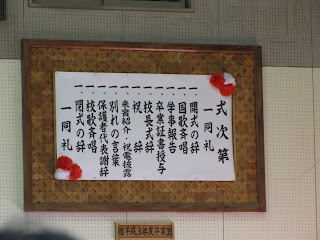 式次第
一同礼
一 開式の辞
一 国歌斉唱
一 学事報告
一 卒業証書授与
一 校長式辞
一 祝辞
一 来賓紹介・祝電披露
一 別れの言葉
一 保護者代表謝辞
一 校歌斉唱
一 閉式の辞
一同礼
平成3年度卒業生